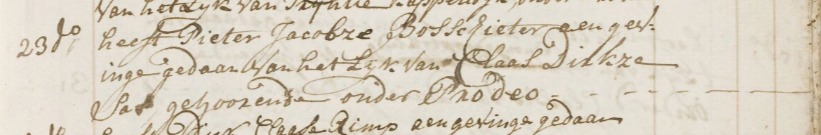 van het Lijk van
23 d:o heeft Pieter Jacobze Bosschieter aengev-
inge gedaan van het Lijk van Claas Dirkze
gehoorende onder Prodeo - - - - - -
Dirk Claase Rimp aengevinge gedaan